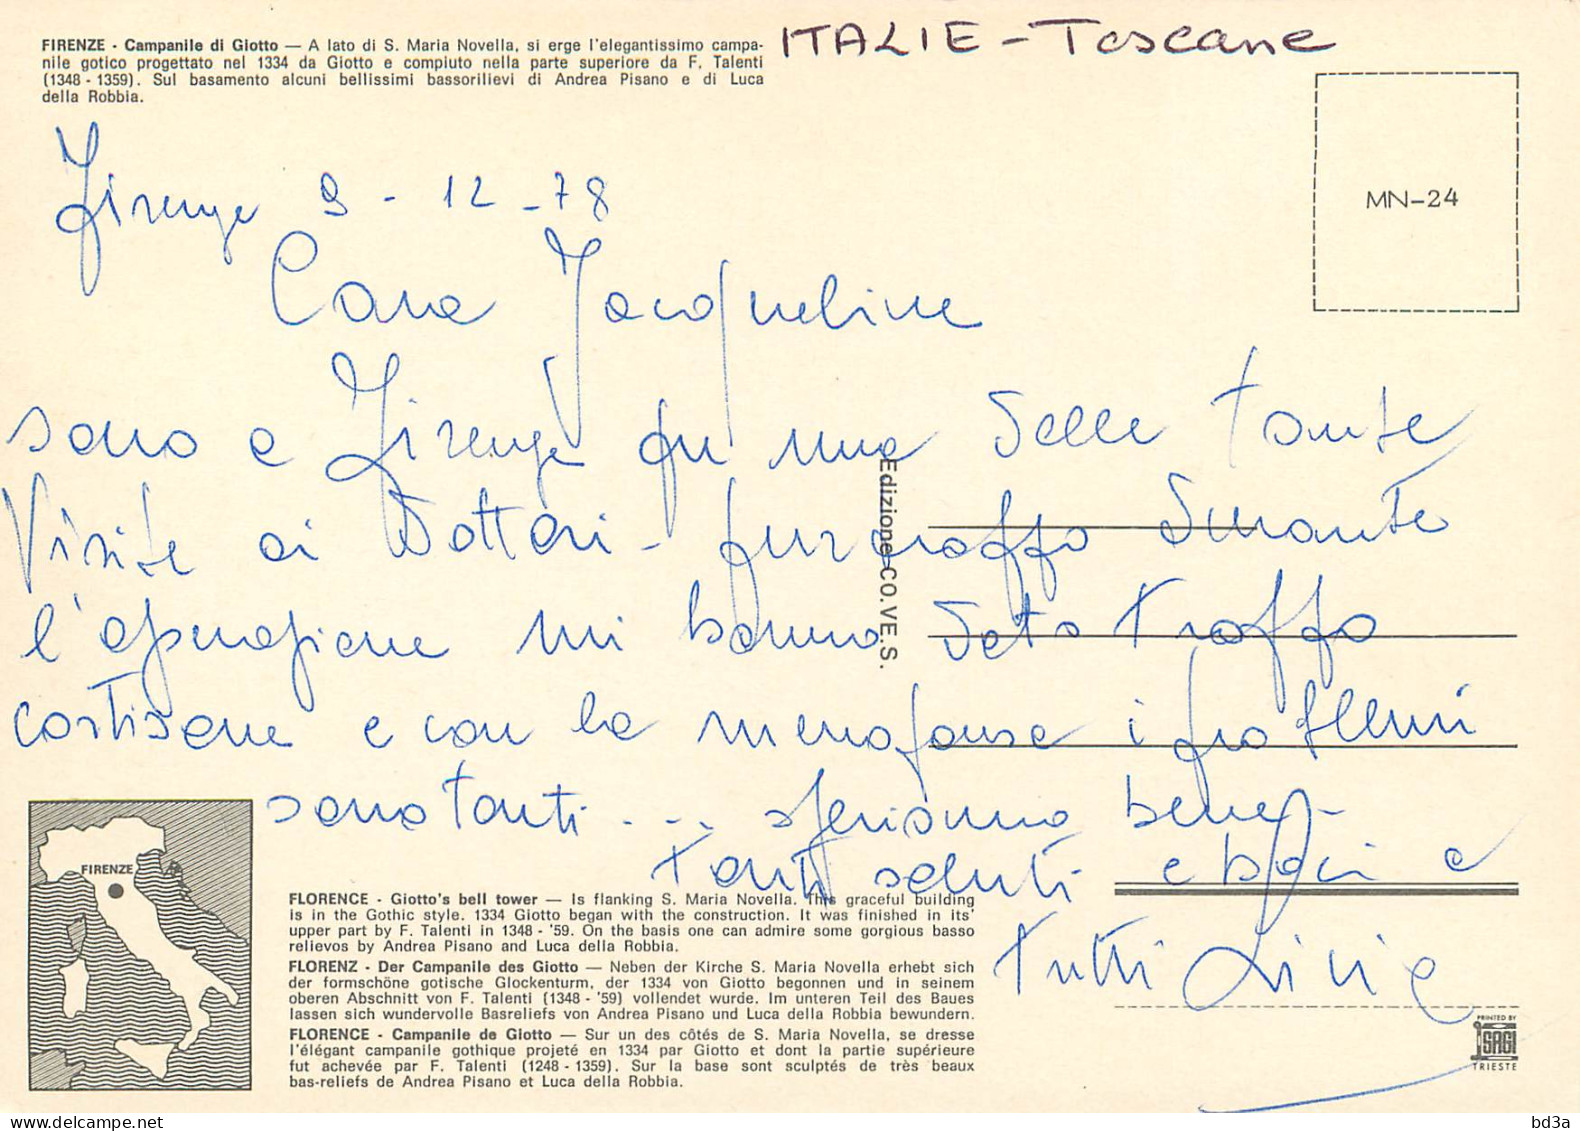 ITALIE - Toscane
FIRENZE - Campanile di Giotto — A lato di S. Maria Novella, si erge l'elegantissimo campa-
nile gotico progettato nel 1334 da Giotto e compiuto nella parte superiore da F. Talenti
(1348 - 1359). Sul basamento alcuni bellissimi bassorilievi di Andrea Pisano e di Luca
della Robbia.
MN-24
Firenze 9 - 12 - 78
Cara Jacqueline
sono a Firenze per una delle tante
visite ai dottori - purtroppo durante
l'operazione mi hanno dato troppo
cortisone e con la menopausa i problemi
sono tanti .... speriamo bene -
Tanti saluti e baci a
tutti Livia
Edizione CO.VE.S.
FIRENZE
FLORENCE - Giotto's bell tower — Is flanking S. Maria Novella. This graceful building
is in the Gothic style. 1334 Giotto began with the construction. It was finished in its'
upper part by F. Talenti in 1348 - '59. On the basis one can admire some gorgious basso
relievos by Andrea Pisano and Luca della Robbia.
FLORENZ - Der Campanile des Giotto — Neben der Kirche S. Maria Novella erhebt sich
der formschöne gotische Glockenturm, der 1334 von Giotto begonnen und in seinem
oberen Abschnitt von F. Talenti (1348 - '59) vollendet wurde. Im unteren Teil des Baues
lassen sich wundervolle Basreliefs von Andrea Pisano und Luca della Robbia bewundern.
FLORENCE - Campanile de Giotto — Sur un des côtés de S. Maria Novella, se dresse
l'élégant campanile gothique projeté en 1334 par Giotto et dont la partie supérieure
fut achevée par F. Talenti (1248 - 1359). Sur la base sont sculptés de très beaux
bas-reliefs de Andrea Pisano et Luca della Robbia.
PRINTED BY
SAGI
TRIESTE
bd3a